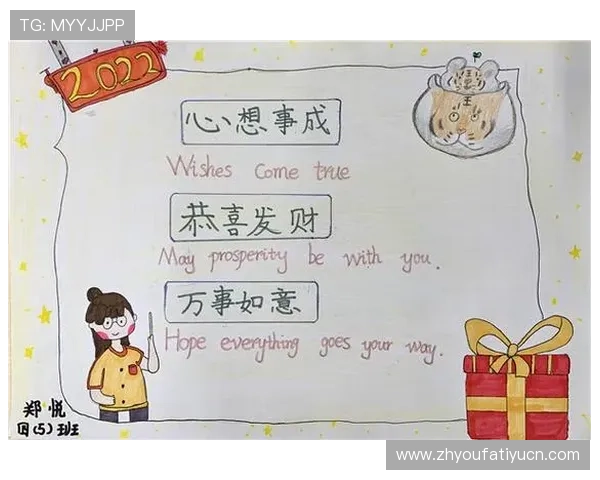 TG: MYYJJPP
2022
王
心想事成
Wishes come true
恭喜发财
May prosperity be with you.
万事如意
Hope everything goes your way.
郑悦
四(5)班
www.zhyoufatiyucn.com